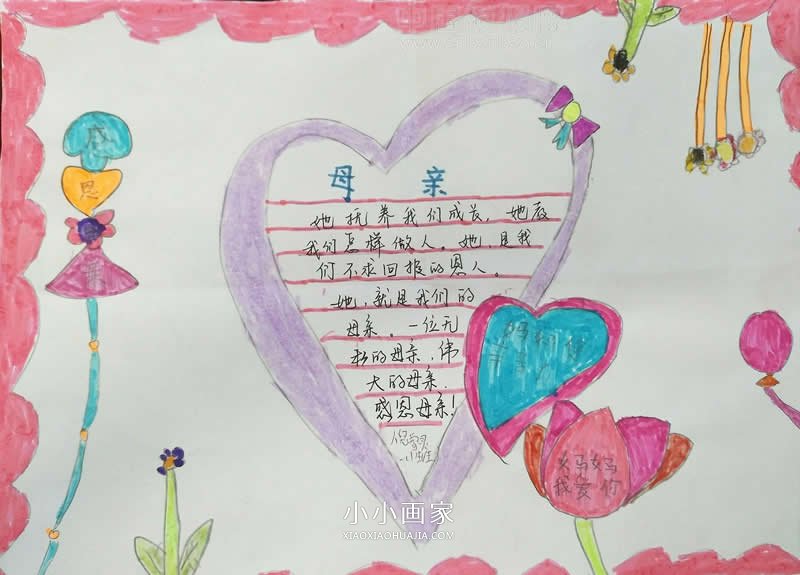 感
恩
母亲
她抚养我们成长，她教
我们怎样做人。她，是我
们不求回报的恩人。
她，就是我们的
母亲。一位无
私的母亲，伟
大的母亲．
感恩母亲！
妈妈
我爱你
小小画家
XIAOXIAOHUAJIA.COM